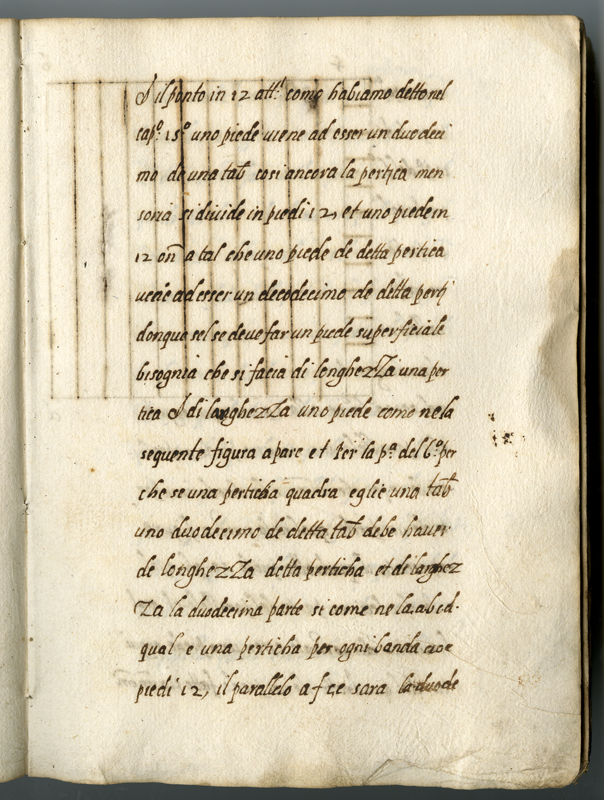 il ponto in 12 att.i como habiamo detto nel
cap.o 15.o uno piede uiene ad esser un duodeci
mo de una tab cosi ancora la pertica men
soria si diuide in piedi 12, et uno piede in
12 on a tal che uno piede de detta pertica
uene ad esser un decodecimo de detta perti
donque sel se deue far un piede superficiale
bisognia che si facia di longhezZa una per
tica di larghezZa uno piede como ne la
sequente figura apare et Per la p.a del 6.o per
che se una perticha quadra eglie una tab
uno duodecimo de detta tab debe hauer
de longhezZa detta perticha et di larghez
Za la duodecima parte si come ne la.abcd.
qual e una perticha per ogni banda cioe
piedi 12, il parallelo sara la duode